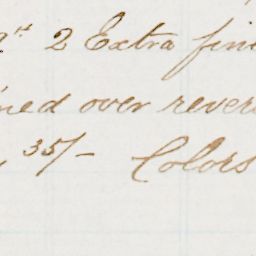 2 Extra fine
ned over rever
35/- Colors